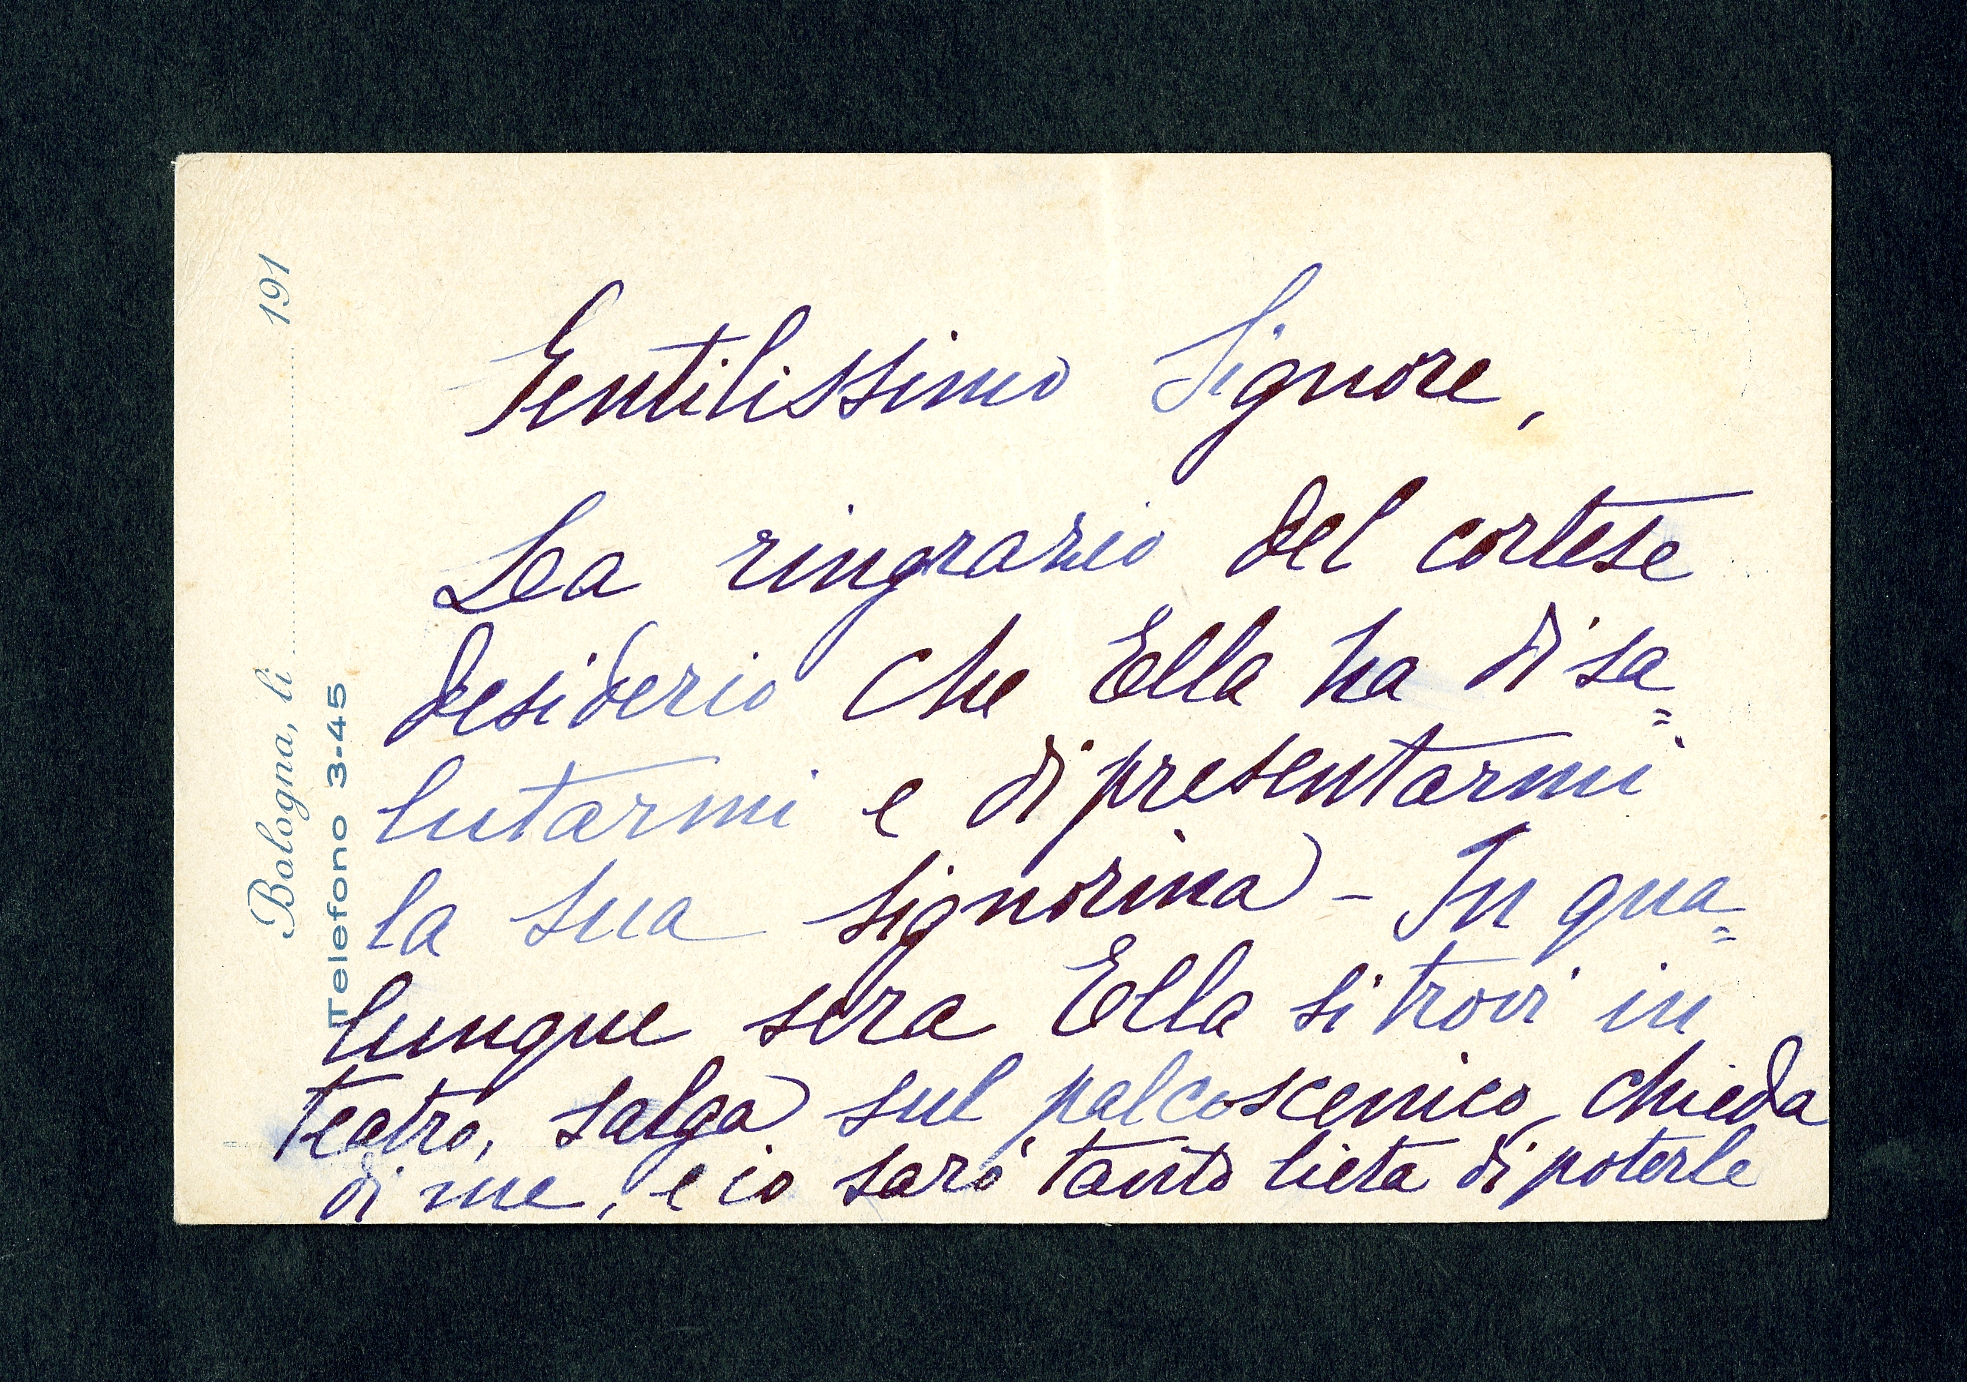 Bologna, li ........................ 191
Telefono 3-45
Gentilissimo Signore,
La ringrazio del cortese
desiderio che Ella ha di sa=
lutarmi e di presentarmi
la sua signorina - In qua=
lunque sera Ella si trovi in
teatro, salga sul palcoscenico, chieda
di me, e io sarò tanto lieta di poterle